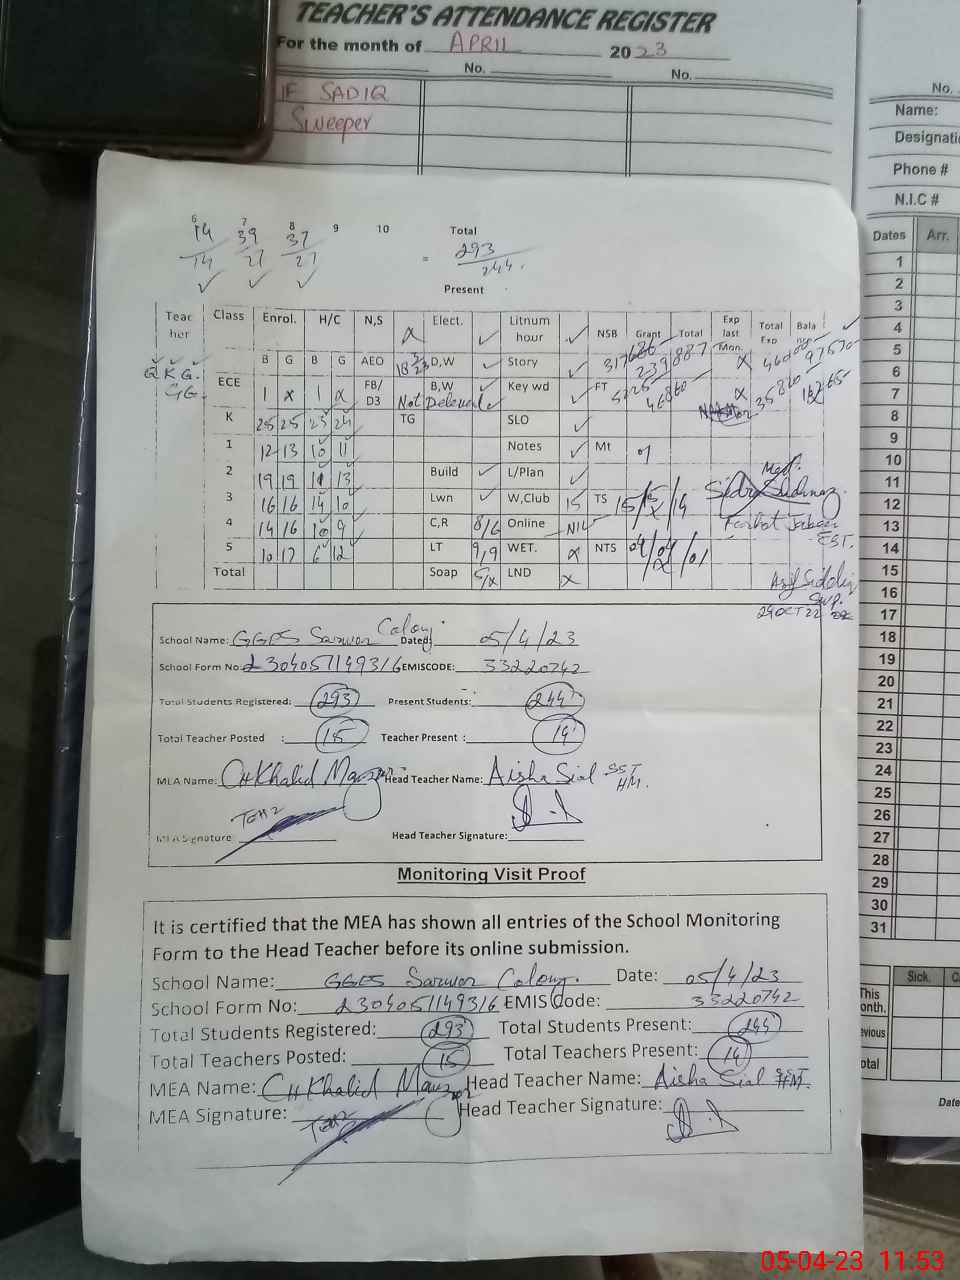 TEACHER'S ATTENDANCE REGISTER
For the month of APRIL 2023
No. No.
IF SADIQ
Sweeper
No.
Name:
Designati
Phone #
N.I.C #
Dates Arr.
1
2
3
4
5
6
7
8
9
10
11
12
13
14
15
16
17
18
19
20
21
22
23
24
25
26
27
28
29
30
31
Sick.
This
onth.
vious
otal
Date
6 7 8 9 10 Total
14 39 37 293
14 27 27 = 244
Present
Teac her Class Enrol. H/C N,S Elect. Litnum hour NSB Grant Total Exp last Mon. Total Exp Bala
B G B G AEO D,W Story 317686 239887 x
ECE 1 x 1 x FB/ D3 Not B,W Key wd FT 46860 x 35860
K 25 25 25 24 TG SLO
1 12 13 10 11 Notes Mt
2 19 19 13 Build L/Plan
3 16 16 14 10 Lwn W,Club 15 TS
4 14 16 10 9 C,R 8/6 Online NIL
5 10 17 6 12 LT 9,9 WET. x NTS 04/04/01
Total Soap 5/x LND x
EST.
29 OCT 22
School Name: GGES Sarwar Colony Dated: 05/4/23
School Form No: 2304051149316 EMISCODE: 33220742
Total Students Registered: 293 Present Students: 244
Total Teacher Posted : 15 Teacher Present : 14
MEA Name: CH Khalid Manzoor Head Teacher Name: Aisha Sial SST HM.
MEA Signature: Head Teacher Signature:
Monitoring Visit Proof
It is certified that the MEA has shown all entries of the School Monitoring
Form to the Head Teacher before its online submission.
School Name: GGES Sarwar Colony. Date: 05/4/23
School Form No: 2304051149316 EMIS Code: 33220742
Total Students Registered: 293 Total Students Present: 244
Total Teachers Posted: 15 Total Teachers Present: 14
MEA Name: CH Khalid Manzoor Head Teacher Name: Aisha Sial SST HM.
MEA Signature: Head Teacher Signature:
05-04-23 11:53